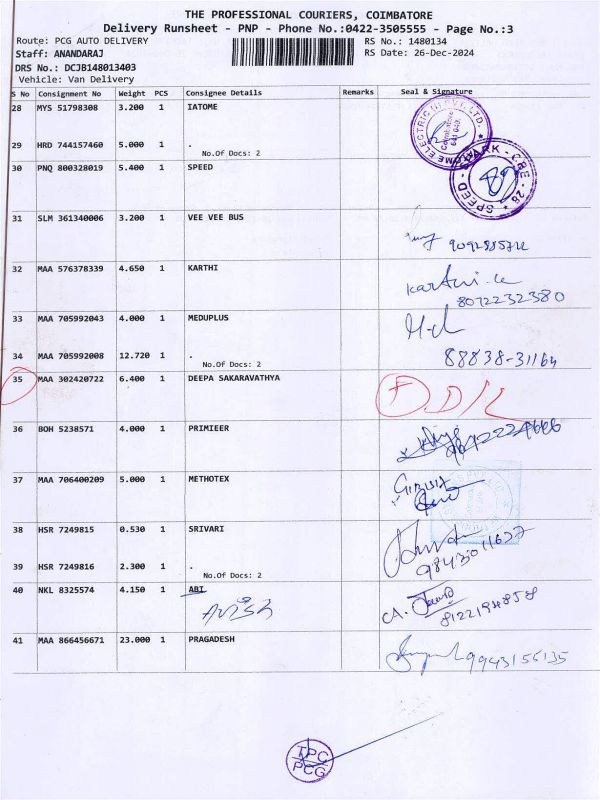 THE PROFESSIONAL COURIERS, COIMBATORE
Delivery Runsheet - PNP - Phone No.:0422-3505555 - Page No.:3
Route: PCG AUTO DELIVERY RS No.: 1480134
Staff: ANANDARAJ RS Date: 26-Dec-2024
DRS No.: DCJB148013403
Vehicle: Van Delivery
S No Consignment No Weight PCS Consignee Details Remarks Seal & Signature
28 MYS 51798308 3.200 1 IATOME
29 HRD 744157460 5.000 1 .
No.Of Docs: 2
30 PNQ 800328019 5.400 1 SPEED
SPEED - SPARK - CBE - 28
31 SLM 361340006 3.200 1 VEE VEE BUS
32 MAA 576378339 4.650 1 KARTHI
8072232380
33 MAA 705992043 4.000 1 MEDUPLUS
34 MAA 705992008 12.720 1 .
88838-31164
No.Of Docs: 2
35 MAA 302420722 6.400 1 DEEPA SAKARAVATHYA
36 BOH 5238571 4.000 1 PRIMIEER
37 MAA 706400209 5.000 1 METHOTEX
38 HSR 7249815 0.530 1 SRIVARI
9843011627
39 HSR 7249816 2.300 1 .
No.Of Docs: 2
40 NKL 8325574 4.150 1 ABI
8122194858
41 MAA 866456671 23.000 1 PRAGADESH
9943155135
TPC
PCG